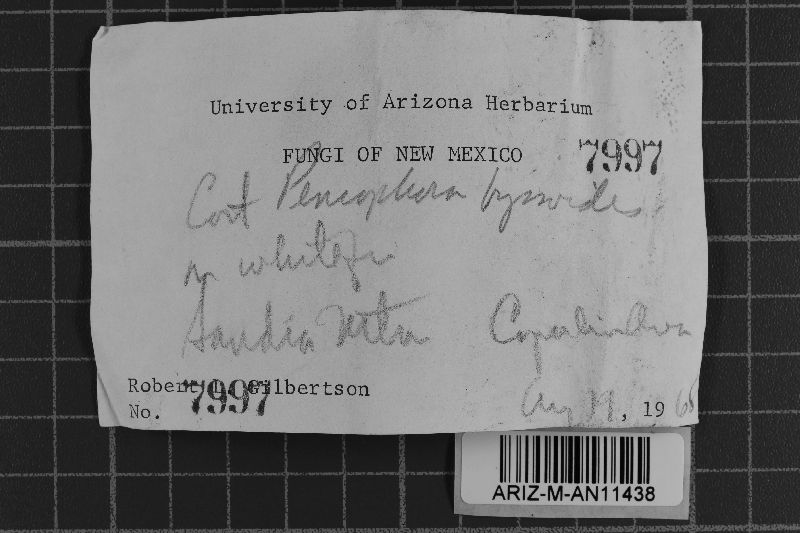 University of Arizona Herbarium
FUNGI OF NEW MEXICO 7997
Cort Peniophora byssoides
on white fir
Sandia Mtn
Robert L. Gilbertson
No. 7997 Aug 19, 1968
ARIZ-M-AN11438